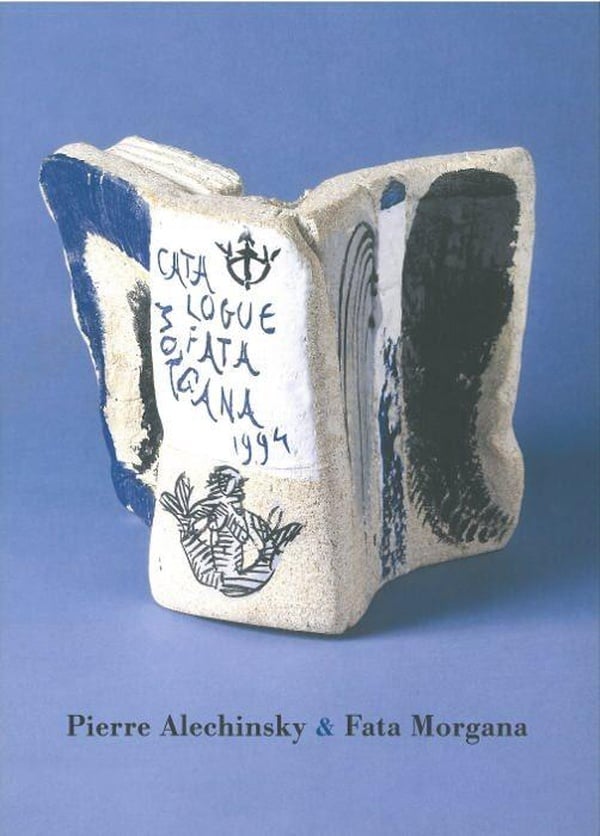 CATA
LOGUE
FATA
MORGANA
1994
Pierre Alechinsky & Fata Morgana